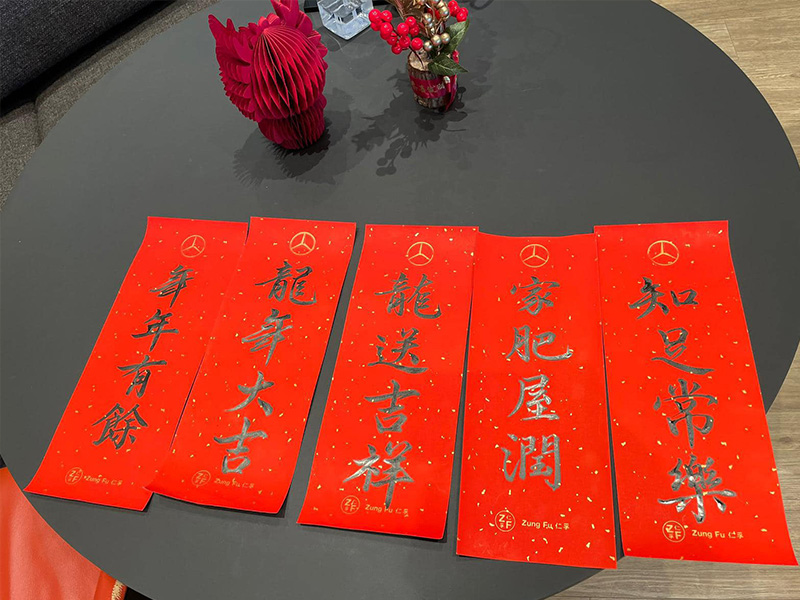 年年有餘
ZF Zung Fu 仁孚
龍年大吉
ZF Zung Fu 仁孚
龍送吉祥
ZF Zung Fu 仁孚
家肥屋潤
ZF Zung Fu 仁孚
知足常樂
ZF Zung Fu 仁孚